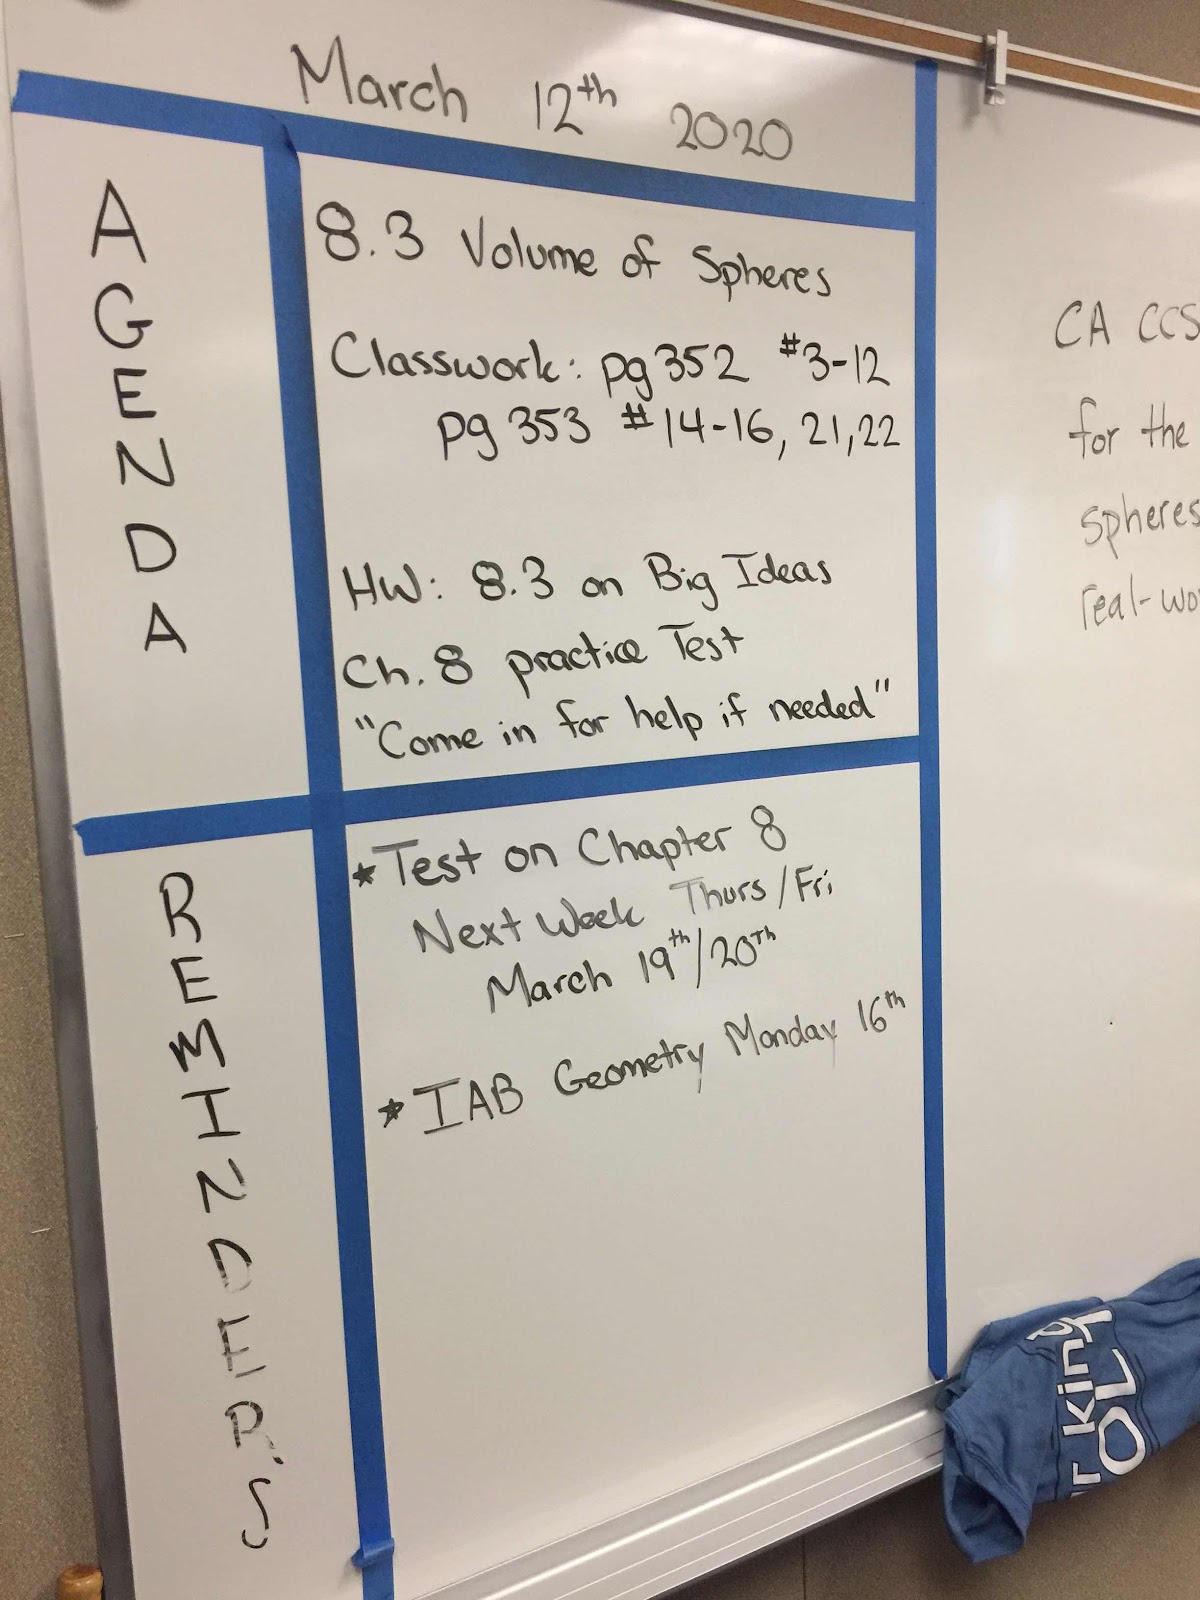 March 12th 2020
AGENDA
8.3 Volume of Spheres
Classwork: pg 352 #3-12
pg 353 #14-16, 21,22
HW: 8.3 on Big Ideas
Ch. 8 practice Test
"Come in for help if needed"
REMINDER'S
*Test on Chapter 8
Next Week Thurs/Fri
March 19th/20Th
* IAB Geometry Monday 16th
CA CCS
for the
spheres
real-wo
king
OL